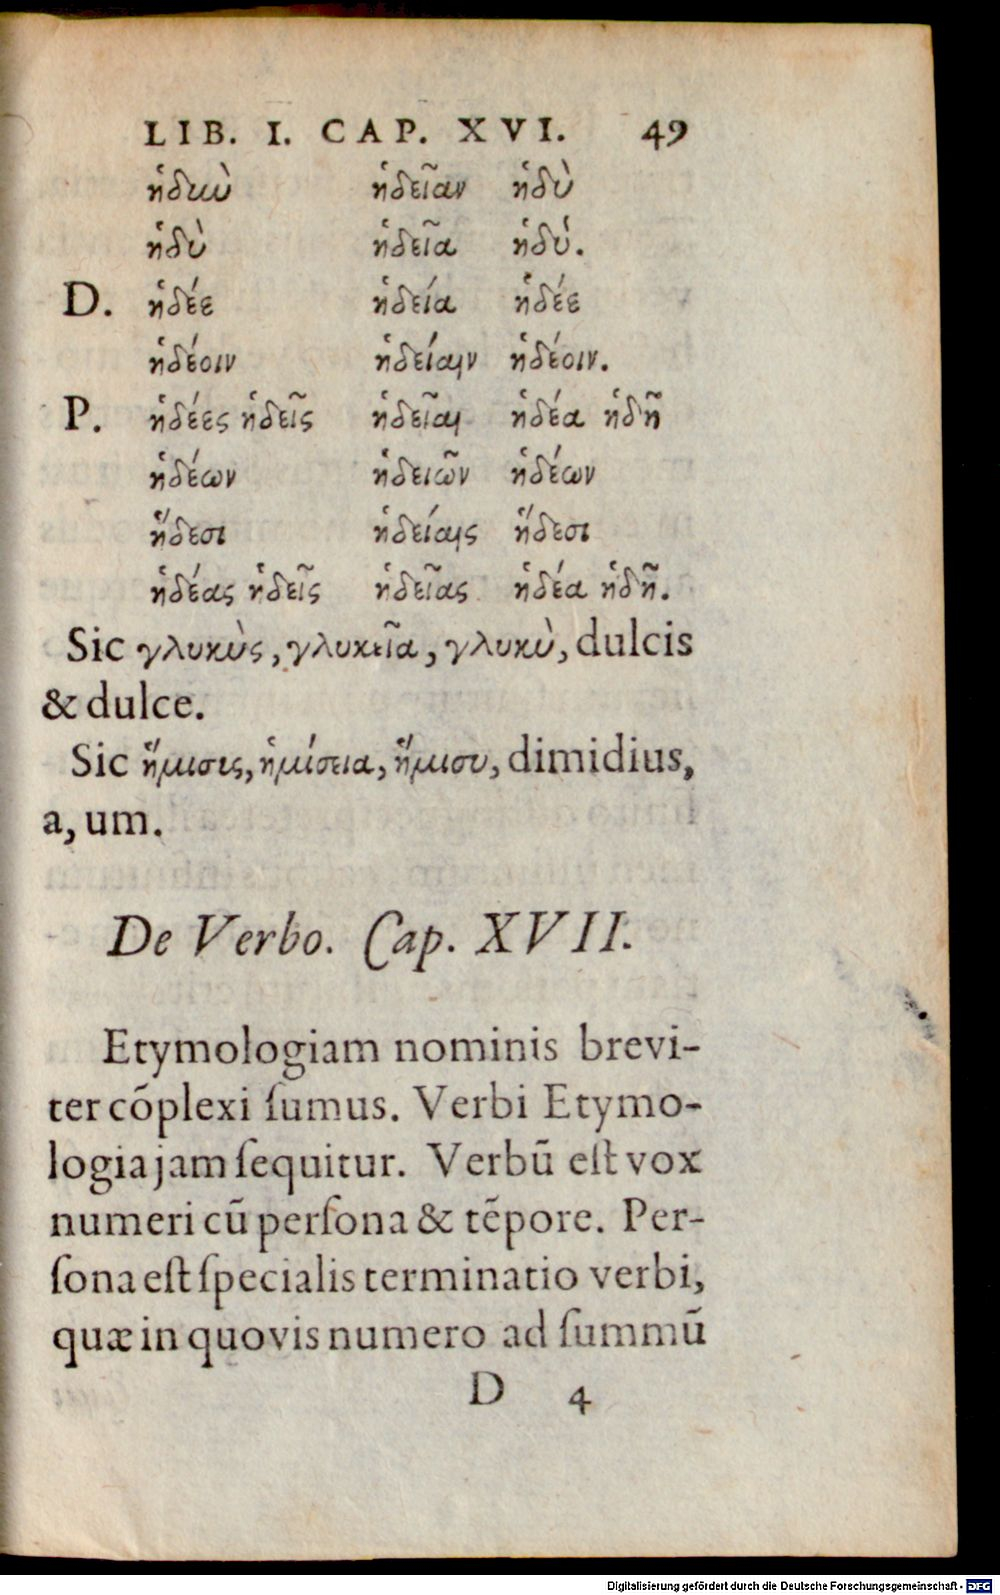 LIB. I. CAP. XVI. 49
ἡδιὺ ἡδεῖαν ἡδὺ
ἡδὺ ἡδεῖα ἡδύ.
D. ἡδέε ἡδεία ἡδέε
ἡδέοιν ἡδείαιν ἡδέοιν.
P. ἡδέες ἡδεῖς ἡδεῖαι ἡδέα ἡδῆ
ἡδέων ἡδειῶν ἡδέων
ἥδεσι ἡδείαις ἥδεσι
ἡδέας ἡδεῖς ἡδεῖας ἡδέα ἡδῆ.
Sic γλυκὺς, γλυκεῖα, γλυκὺ, dulcis
& dulce.
Sic ἥμισις, ἡμίσεια, ἥμισυ, dimidius,
a, um.
De Verbo. Cap. XVII.
Etymologiam nominis brevi-
ter cõplexi ſumus. Verbi Etymo-
logia jam ſequitur. Verbũ eſt vox
numeri cũ perſona & tẽpore. Per-
ſona eſt ſpecialis terminatio verbi,
quæ in quovis numero ad ſummũ
D 4
Digitalisierung gefördert durch die Deutsche Forschungsgemeinschaft - DFG